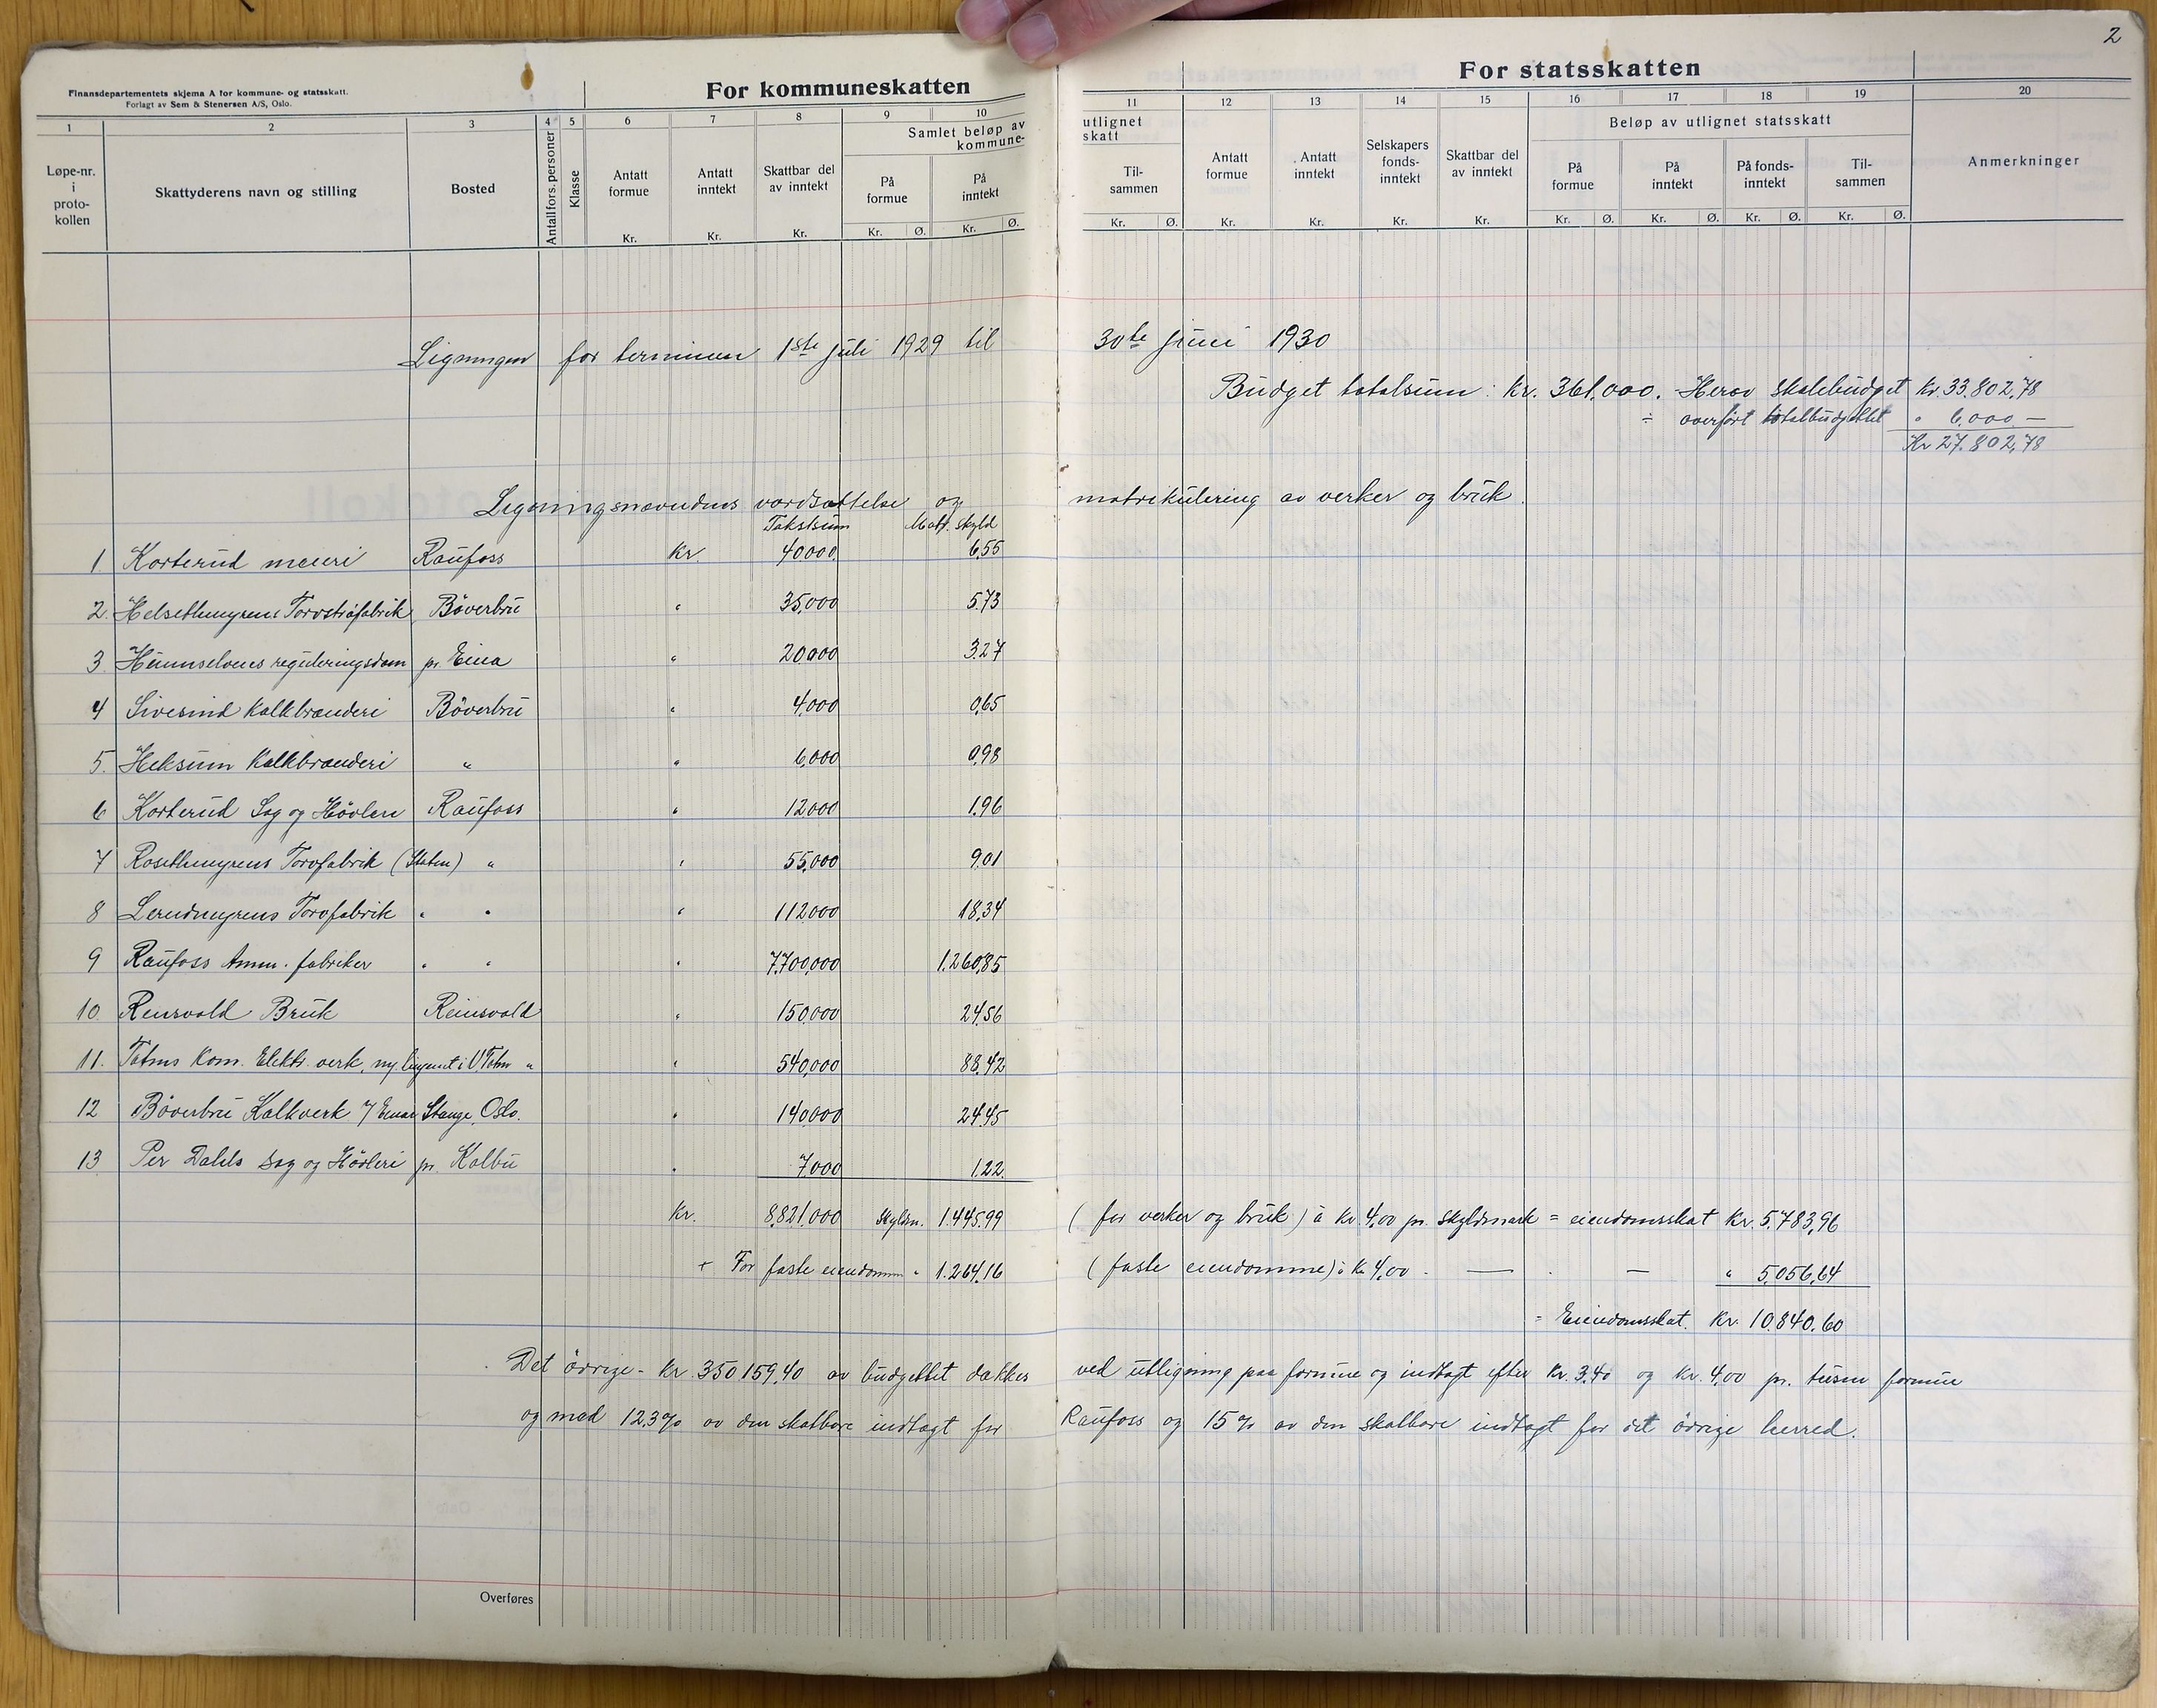 2
Finansdepartementets skjema A for kommune- og statsskatt.
Forlagt av Sem & Stenersen A/S, Oslo.
For kommuneskatten
For statsskatten
1 2 3 4 5 6 7 8 9 10 11 12 13 14 15 16 17 18 19 20
Løpe-nr. i proto-kollen
Skattyderens navn og stilling
Bosted
Antall fors. personer
Klasse
Antatt formue Kr.
Antatt inntekt Kr.
Skattbar del av inntekt Kr.
Samlet beløp av kommune-
På formue Kr. Ø.
På inntekt Kr. Ø.
utlignet skatt
Til-sammen Kr. Ø.
Antatt formue Kr.
Antatt inntekt Kr.
Selskapers fonds-inntekt Kr.
Skattbar del av inntekt Kr.
Beløp av utlignet statsskatt
På formue Kr. Ø.
På inntekt Kr. Ø.
På fonds-inntekt Kr. Ø.
Til-sammen Kr. Ø.
Anmerkninger
Ligningen for terminen 1ste juli 1929 til 30te juni 1930
Budget totalsum: Kr. 361.000. Herav skolebudget Kr. 33.802,78
÷ overført totalbudgettet " 6,000 —
Kr 27.802,78
Ligningsnævndens værdsættelse og matrikulering av verker og bruk.
Takstsum Matr. skyld
1 Korterud meieri Raufoss Kr. 40000 6,55
2. Helsethmyrens Torvstrøfabrik Bøverbru " 35,000 5.73
3 Hunnselvens reguleringsdam pr. Eina " 20000 3.27
4 Sivesind Kalkbrænderi Bøverbru " 4,000 0,65
5. Heksum Kalkbrænderi " " 6,000 0,98
6 Korterud Sag og Høvleri Raufoss " 12000 1.96
7 Rosethmyrens Torvfabrik (Staten) " " 55,000 9.01
8 Lerudmyrens Torvfabrik " " " 112000 18.34
9 Raufoss Amm. fabriker " " " 7.700,000 1.260,85
10 Rensvold Bruk Reinsvold " 150,000 24,56
11. Totens Kom. Elektr. verk, ny Toten " " 540,000 88,42
12 Bøverbru Kalkverk Stange, Oslo. " 140000 24.45
13 Per Dahls sag og Høvleri pr. Kolbu " 7000 1.22
Kr. 8,821,000 Skyldm. 1.445.99 (for verker og bruk) à Kr 4,00 pr. skyldmark = eiendomsskat Kr. 5,783,96
+ For faste eiendomme " 1.264,16 (faste eiendomme) à Kr 4,00 - — " — " 5,056,64
= Eiendomsskat. Kr. 10.840,60
Det øvrige - Kr. 350159,40 av budgettet dækkes ved utligning paa formue og indtægt efter Kr. 3.40 og Kr. 4,00 pr. tusen formue
og med 12.3% av den skatbare indtægt for Raufoss og 15% av den skatbare indtægt for det øvrige herred.
Overføres